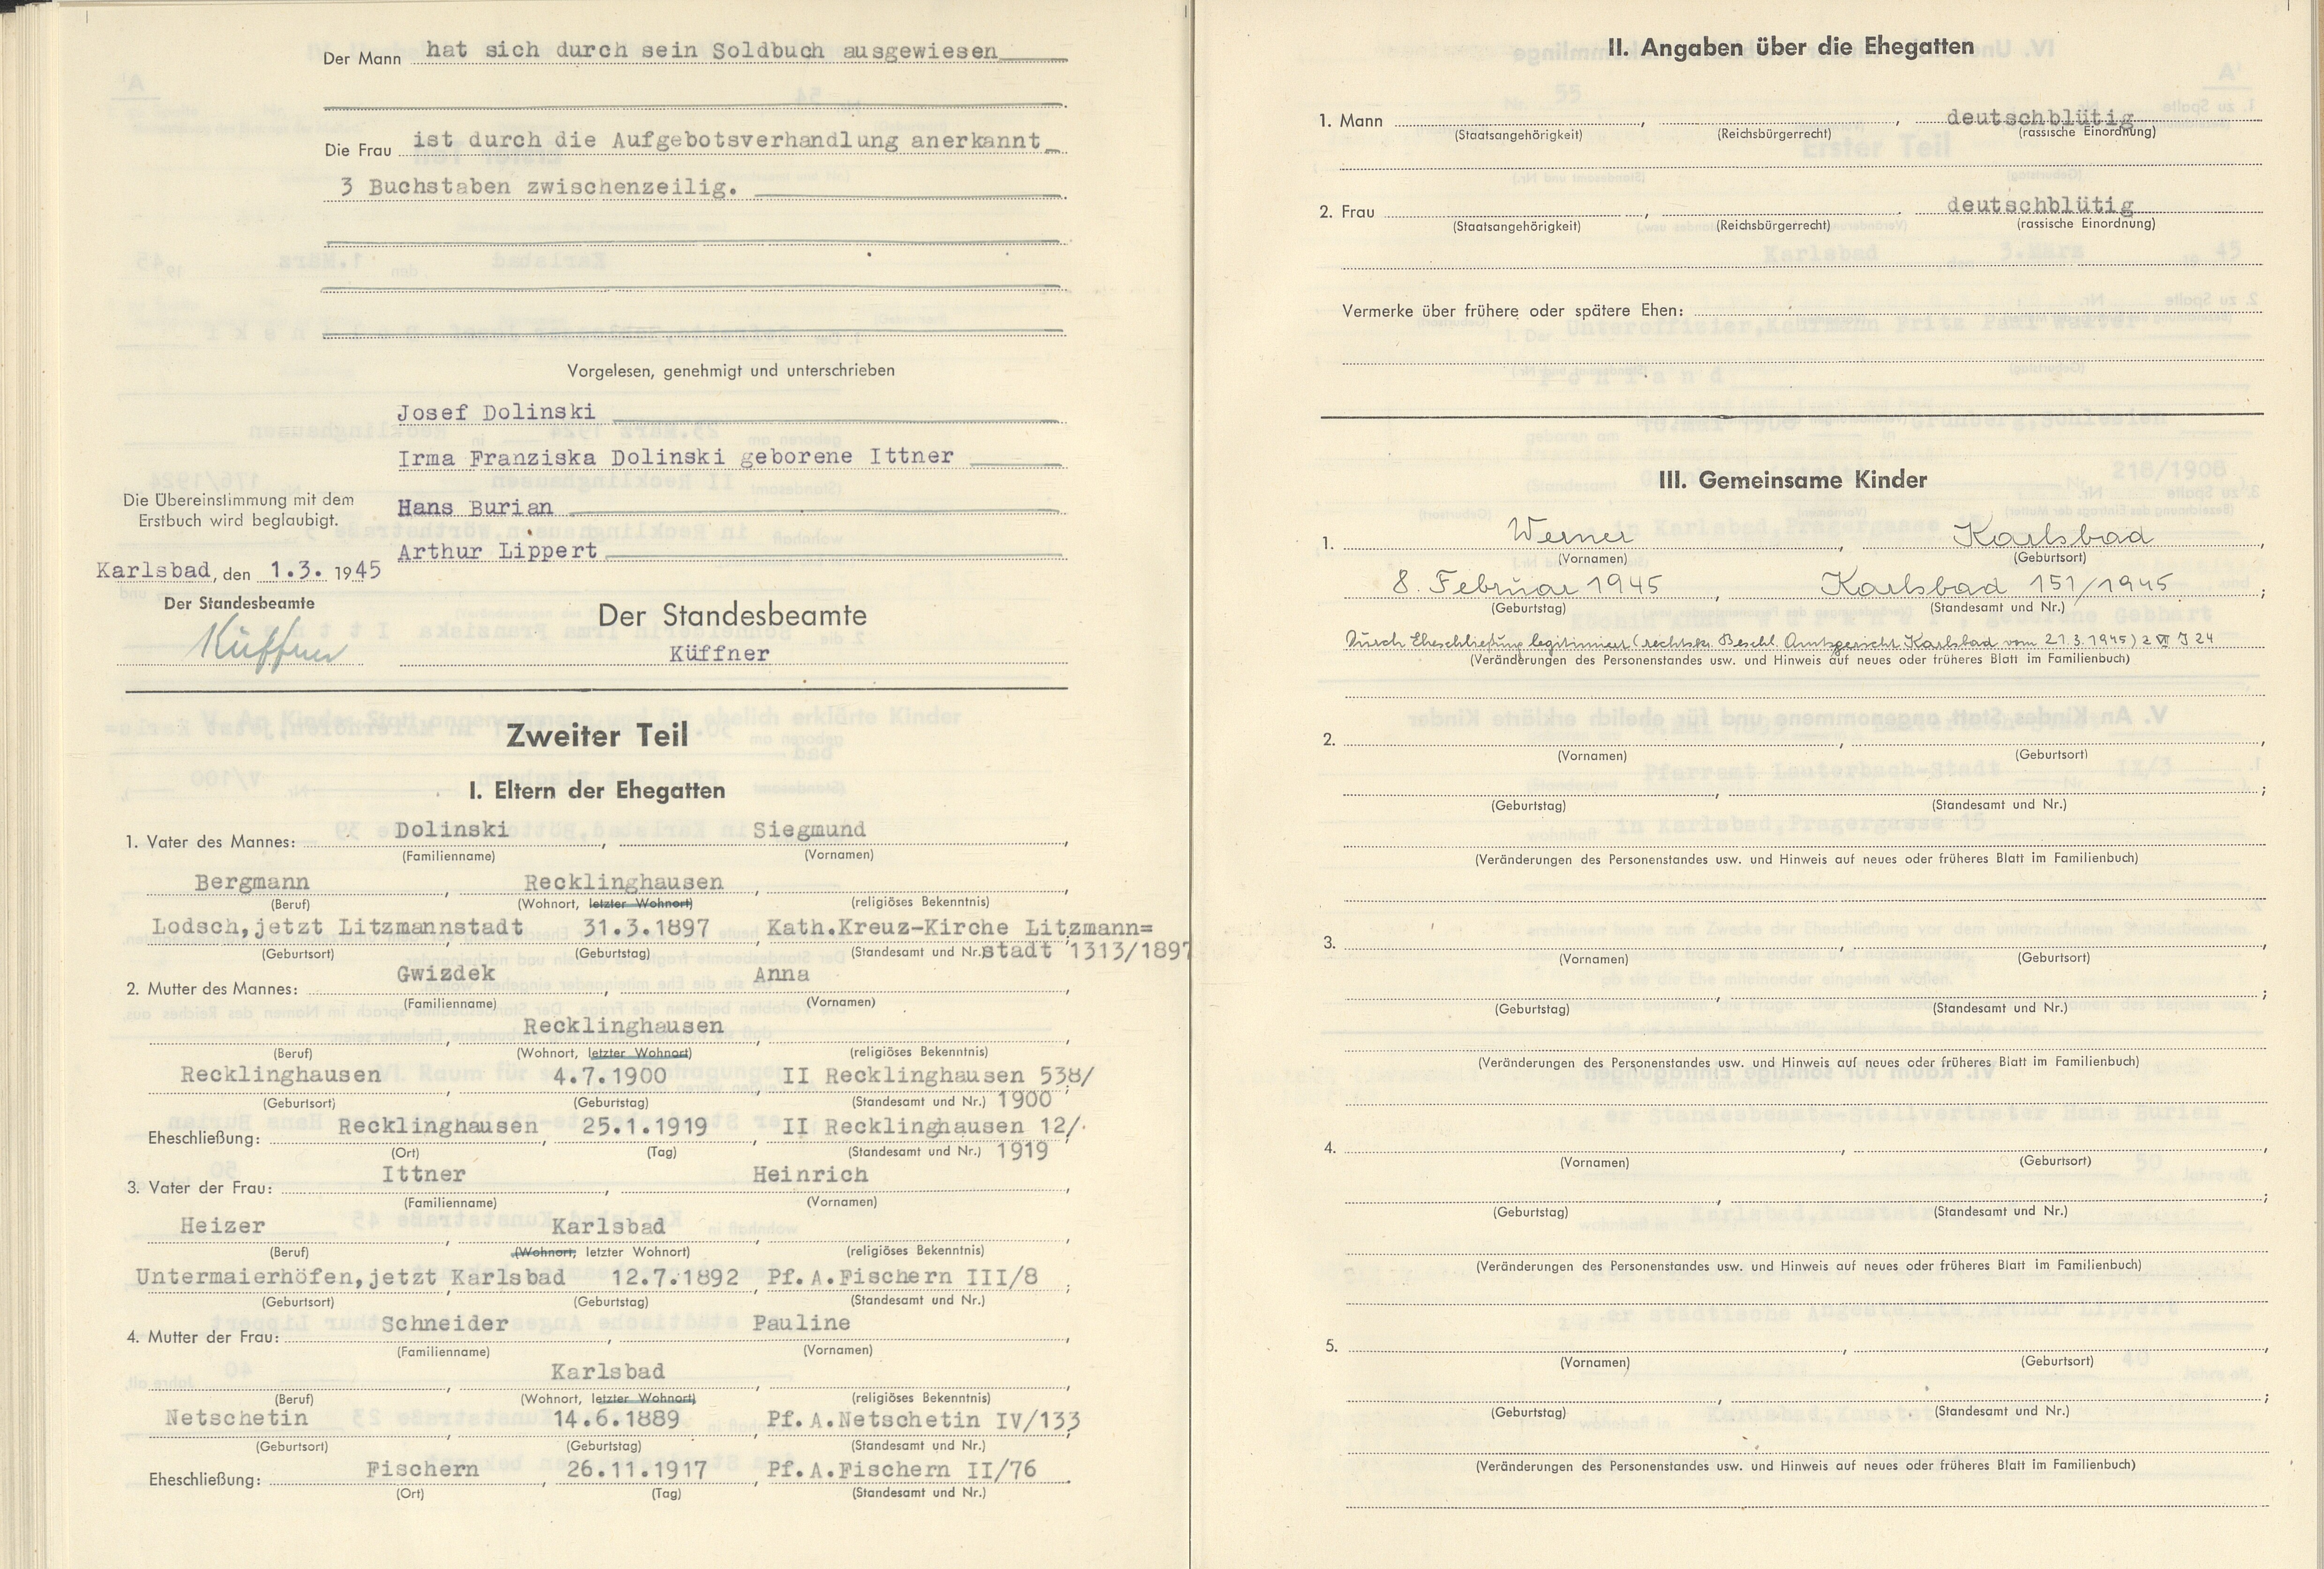 Der Mann hat sich durch sein Soldbuch ausgewiesen
Die Frau ist durch die Aufgebotsverhandlung anerkannt
3 Buchstaben zwischenzeilig.
Vorgelesen, genehmigt und unterschrieben
Josef Dolinski
Irma Franziska Dolinski geborene Ittner
Die Übereinstimmung mit dem
Erstbuch wird beglaubigt.
Hans Burian
Arthur Lippert
Karlsbad, den 1.3. 1945
Der Standesbeamte
Küffner
Der Standesbeamte
Küffner
Zweiter Teil
I. Eltern der Ehegatten
1. Vater des Mannes: Dolinski, Siegmund,
(Familienname) (Vornamen)
Bergmann, Recklinghausen,
(Beruf) (Wohnort, letzter Wohnort) (religiöses Bekenntnis)
Lodsch, jetzt Litzmannstadt 31.3.1897, Kath.Kreuz-Kirche Litzmann=
(Geburtsort) (Geburtstag) (Standesamt und Nr.) stadt 1313/1897
2. Mutter des Mannes: Gwizdek, Anna,
(Familienname) (Vornamen)
Recklinghausen,
(Beruf) (Wohnort, letzter Wohnort) (religiöses Bekenntnis)
Recklinghausen, 4.7.1900, II Recklinghausen 538/
(Geburtsort) (Geburtstag) (Standesamt und Nr.) 1900;
Eheschließung: Recklinghausen, 25.1.1919, II Recklinghausen 12/.
(Ort) (Tag) (Standesamt und Nr.) 1919
3. Vater der Frau: Ittner, Heinrich,
(Familienname) (Vornamen)
Heizer, Karlsbad,
(Beruf) (Wohnort, letzter Wohnort) (religiöses Bekenntnis)
Untermaierhöfen, jetzt Karlsbad 12.7.1892, Pf.A.Fischern III/8;
(Geburtsort) (Geburtstag) (Standesamt und Nr.)
4. Mutter der Frau: Schneider, Pauline,
(Familienname) (Vornamen)
Karlsbad,
(Beruf) (Wohnort, letzter Wohnort) (religiöses Bekenntnis)
Netschetin, 14.6.1889, Pf.A.Netschetin IV/133;
(Geburtsort) (Geburtstag) (Standesamt und Nr.)
Eheschließung: Fischern, 26.11.1917, Pf.A.Fischern II/76.
(Ort) (Tag) (Standesamt und Nr.)
II. Angaben über die Ehegatten
1. Mann, , deutschblütig
(Staatsangehörigkeit) (Reichsbürgerrecht) (rassische Einordnung)
2. Frau, . deutschblütig
(Staatsangehörigkeit) (Reichsbürgerrecht) (rassische Einordnung)
Vermerke über frühere oder spätere Ehen:
III. Gemeinsame Kinder
1. Werner, Karlsbad,
(Vornamen) (Geburtsort)
8. Februar 1945, Karlsbad 151/1945;
(Geburtstag) (Standesamt und Nr.)
Durch Eheschließung legitimiert (rechtskr. Beschl. Amtsgericht Karlsbad vom 21.3.1945) 2 VII J 24
(Veränderungen des Personenstandes usw. und Hinweis auf neues oder früheres Blatt im Familienbuch)
2. , ,
(Vornamen) (Geburtsort)
(Geburtstag) (Standesamt und Nr.)
(Veränderungen des Personenstandes usw. und Hinweis auf neues oder früheres Blatt im Familienbuch)
3. , ,
(Vornamen) (Geburtsort)
(Geburtstag) (Standesamt und Nr.)
(Veränderungen des Personenstandes usw. und Hinweis auf neues oder früheres Blatt im Familienbuch)
4. , ,
(Vornamen) (Geburtsort)
(Geburtstag) (Standesamt und Nr.)
(Veränderungen des Personenstandes usw. und Hinweis auf neues oder früheres Blatt im Familienbuch)
5. , ,
(Vornamen) (Geburtsort)
(Geburtstag) (Standesamt und Nr.)
(Veränderungen des Personenstandes usw. und Hinweis auf neues oder früheres Blatt im Familienbuch)